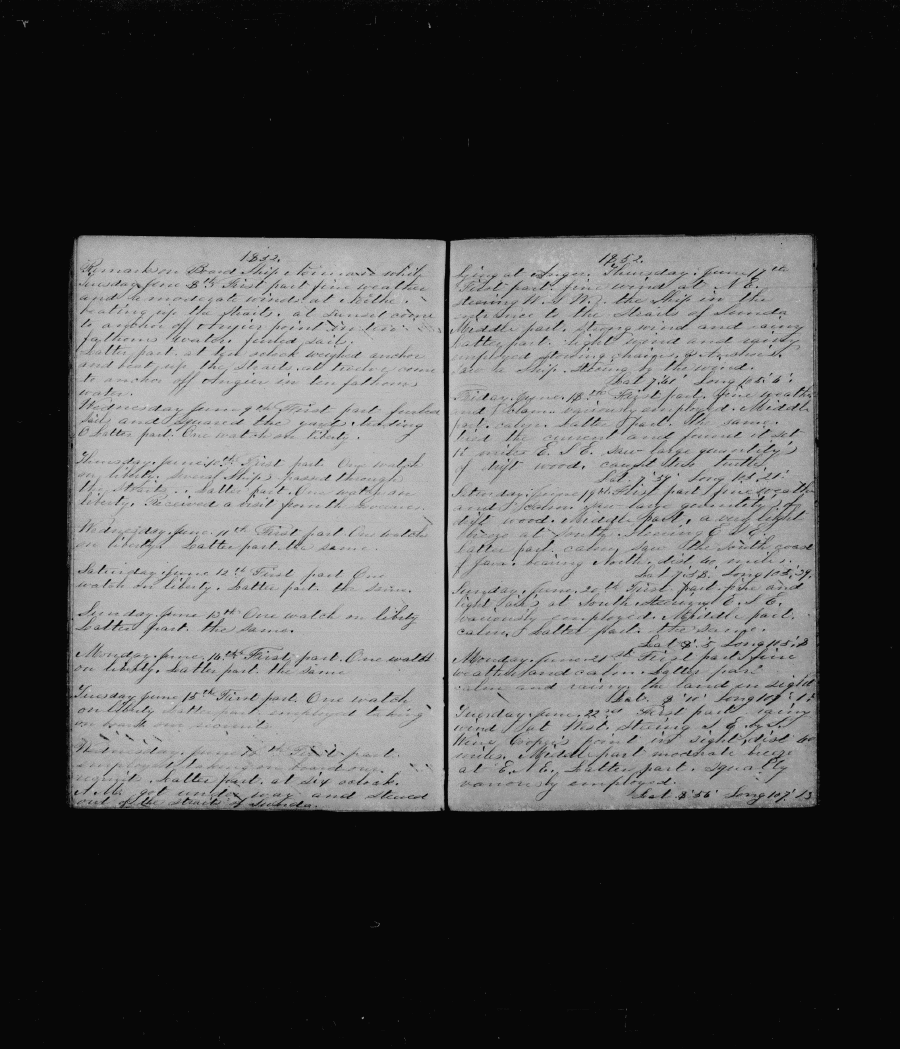 1852.
Remarks on Board Ship while
Tuesday June 8th First part fine weather
and a moderate wind at
beating up the Straits. at Sunset came
to anchor off Angier point in ten
fathoms water. furled sail.
Latter part. at ten oclock weighed anchor
and beat up the Straits. at twelve came
to anchor off Angier in ten fathoms
water.
Wednesday June 9th First part furled
Sails and squared the yards, tending
Latter part. One watch on liberty.
Thursday June 10th First part. One watch
on liberty. Several Ships passed through
the Straits. Latter part. One watch on
liberty. Received a visit from the
Wednesday June 11th First part One watch
on liberty. Latter part the same.
Saturday June 12th First part One
watch on liberty. Latter part. the same.
Sunday June 13th One watch on liberty
Latter part. the same.
Monday June 14th First part. One watch
on liberty. Latter part. the same
Tuesday June 15th First part. One watch
on liberty Latter part employed taking
on board
Wednesday June 16th First part
employed taking on board our
Latter part. at six oclock.
A.M. got under way and Steered
out of the Straits of Sunda.
1852.
lying at Anger. Thursday. June 17th
First part. fine wind at N.E.
steering the Ship in the
entrance to the Straits of Sunda
Middle part. strong wind and rainy
Latter part. light wind and rainy
employed stowing chains & Anchors.
Saw a Ship. Steering by the wind.
Lat Long
Friday. June. 18th First part. fine weather
and calm. variously employed. Middle
part. calm. Latter part. the same.
tried the current and found it set
12 miles E.S.E. Saw large quantity
of drift wood. caught turtle.
Lat Long
Saturday. June 19th First part fine weather
and calm. saw large quantity of
drift wood. Middle part, a very light
breeze at South. Steering E.S.E.
Latter part. calm. Saw the South coast
of Java. bearing North. dist 40 miles.
Lat Long
Sunday. June. 20th First part. fine and
light Airs at South Steering E.S.E.
variously employed. Middle part.
calm. Latter part. the same.
Lat Long
Monday. June. 21st First part fine
weather and calm. Latter part
calm and rainy. the land in sight
Lat Long
Tuesday. June. 22nd First part rainy
wind at West. Steering S.E. by S.
point in sight. dist 60
miles. Middle part moderate breeze
at E.N.E. Latter part. squally
variously employed.
Lat 8°56' Long 107°13